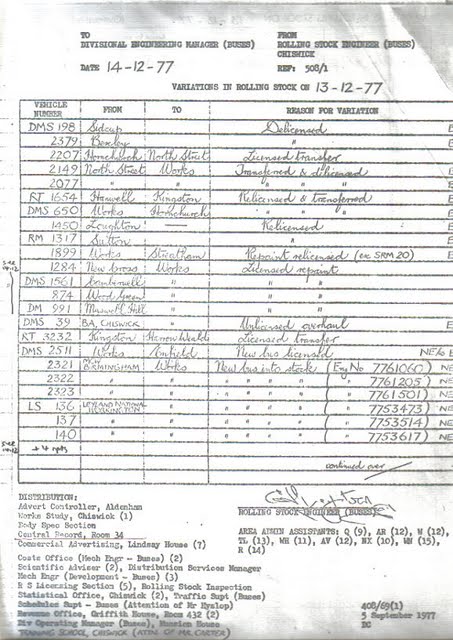 TO FROM
DIVISIONAL ENGINEERING MANAGER (BUSES) ROLLING STOCK ENGINEER (BUSES)
CHISWICK
DATE 14-12-77 REF: 508/1
VARIATIONS IN ROLLING STOCK ON 13-12-77
VEHICLE NUMBER FROM TO REASON FOR VARIATION
DMS 198 Sidcup Delicensed
2379 Bexley "
2207 Hornchurch North Street Licensed transfer
2149 North Street Works Transferred & delicensed
2077 " " " " "
RT 1654 Hanwell Kingston Relicensed & transferred
DMS 650 Works Hornchurch " " "
1450 Loughton — Relicensed
RM 1317 Sutton "
1899 Works Streatham Repaint relicensed (ex SRM 20)
1284 New Cross Works Licensed repaint
DMS 1561 Camberwell " "
874 Wood Green " "
DM 991 Muswell Hill " "
DMS 39 BA, CHISWICK Unlicensed overhaul
RT 3232 Kingston Harrow Weald Licensed transfer
DMS 2511 Works Enfield New bus licensed
2321 BIRMINGHAM Works New bus into stock (Eng No 7761060)
2322 " " " " " " ( " 7761205)
2323 " " " " " " ( " 7761501)
LS 136 LEYLAND NATIONAL WORKINGTON " " " " " ( " 7753473)
137 " " " " " " ( " 7753514)
140 " " " " " " ( " 7753617)
continued over
DISTRIBUTION:
Advert Controller, Aldenham
Works Study, Chiswick (1)
Body Spec Section
Central Record, Room 34
Commercial Advertising, Lindsay House (7)
Costs Office (Mech Engr - Buses) (2)
Scientific Adviser (2), Distribution Services Manager
Mech Engr (Development - Buses) (3)
R S Licensing Section (5), Rolling Stock Inspection
Statistical Office, Chiswick (2), Traffic Supt (Buses)
Schedules Supt - Buses (Attention of Mr Hyslop)
Revenue Office, Griffith House, Room 432 (2)
Div Operating Manager (Buses), Mansion House
TRAINING SCHOOL, CHISWICK (ATTN. OF MR. CARTER)
ROLLING STOCK ENGINEER (BUSES)
AREA ADMIN ASSISTANTS: Q (9), AR (12), W (12),
TL (13), WH (11), AV (12), NX (10), MN (15),
R (14)
408/69(1)
5 September 1977